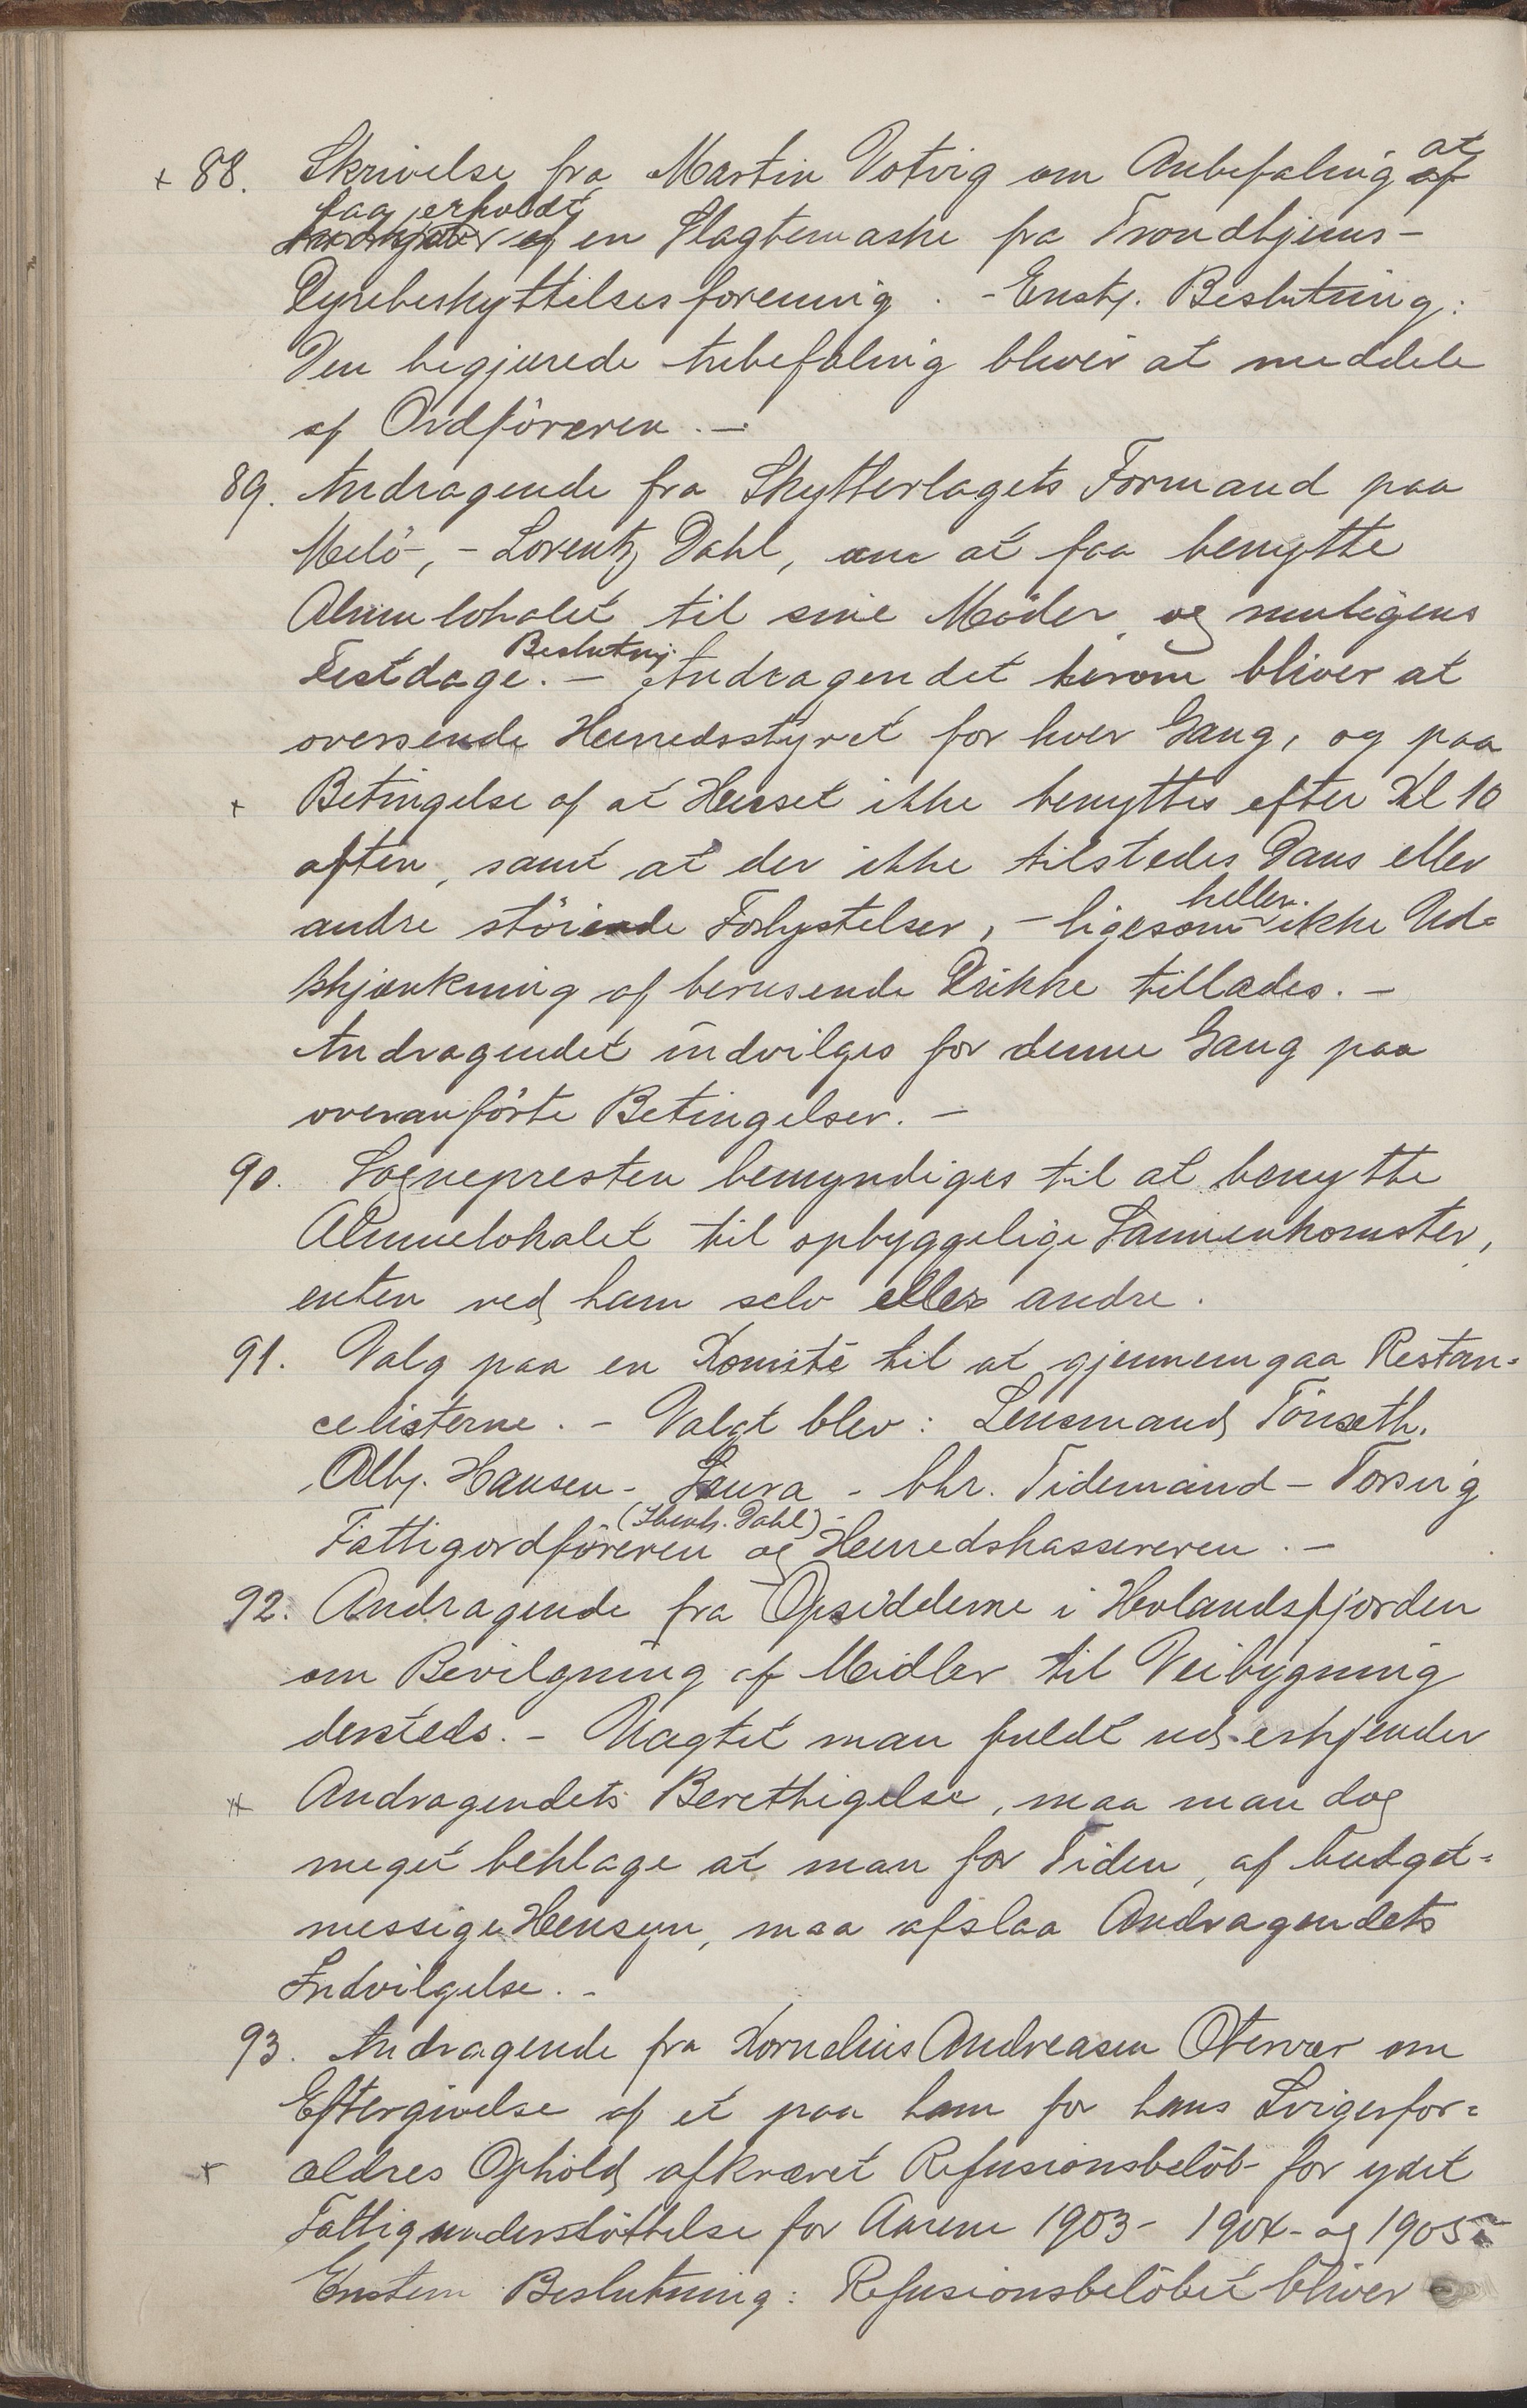 + 88. Skrivelse fra Martin Votvig om Anbefaling at
faa erholdt en Slagtemaske fra Trondhjems-
Dyrebeskyttelsesforening. - Enst. Beslutning:
Den begjærede Anbefaling bliver at meddele
af Ordföreren. -
89. Andragende fra Skytterlagets Formand paa
Melö-, - Lorentz Dahl, om at faa benytte
Almulokalet til sine Möder og muligens
Festdage. - Beslutning: Andragendet herom bliver at
oversende Herredsstyret for hver Gang, og paa
+ Betingelse af at Huset ikke benyttes efter Kl 10
aften, samt at der ikke tilstedes Dans eller
andre störende Forlystelser, - ligesom heller ikke Ud=
skjænkning af berusende Drikke tillades. -
Andragendet indvilges for denne Gang paa
overanförte Betingelser. -
90. Sognepresten bemyndiges til at benytte
Almuelokalet til opbyggelige Sammenkomster,
enten ved ham selv eller andre.
91. Valg paa en Komité til at gjennemgaa Restan=
celisterne. - Valgt blev: Lensmand Tönseth.
Alb. Hansen - - Chr. Tidemand - Torsvig
Fattigordföreren (Ibenh. Dahl) og Herredskassereren. -
92. Andragende fra Opsidderne i Hevlandsfjorden
om Bevilgning af Midler til Veibygning
dersteds. - Uagtet man fuldt ud erkjender
+ Andragendets Berettigelse, maa man dog
meget beklage at man for Tiden, af budget=
messige Hensyn, maa afslaa Andragendets
Indvilgelse. -
93. Andragende fra Kornelius Andreasen Otervær om
Eftergivelse af et paa ham for hans Svigerfor=
+ ældres Ophold afkrævet Refusionsbelöb for ydet
Fattigunderstöttelse for Aarene 1903 - 1904 - og 1905 -
Enstem Beslutning: Refusionsbelöbet bliver